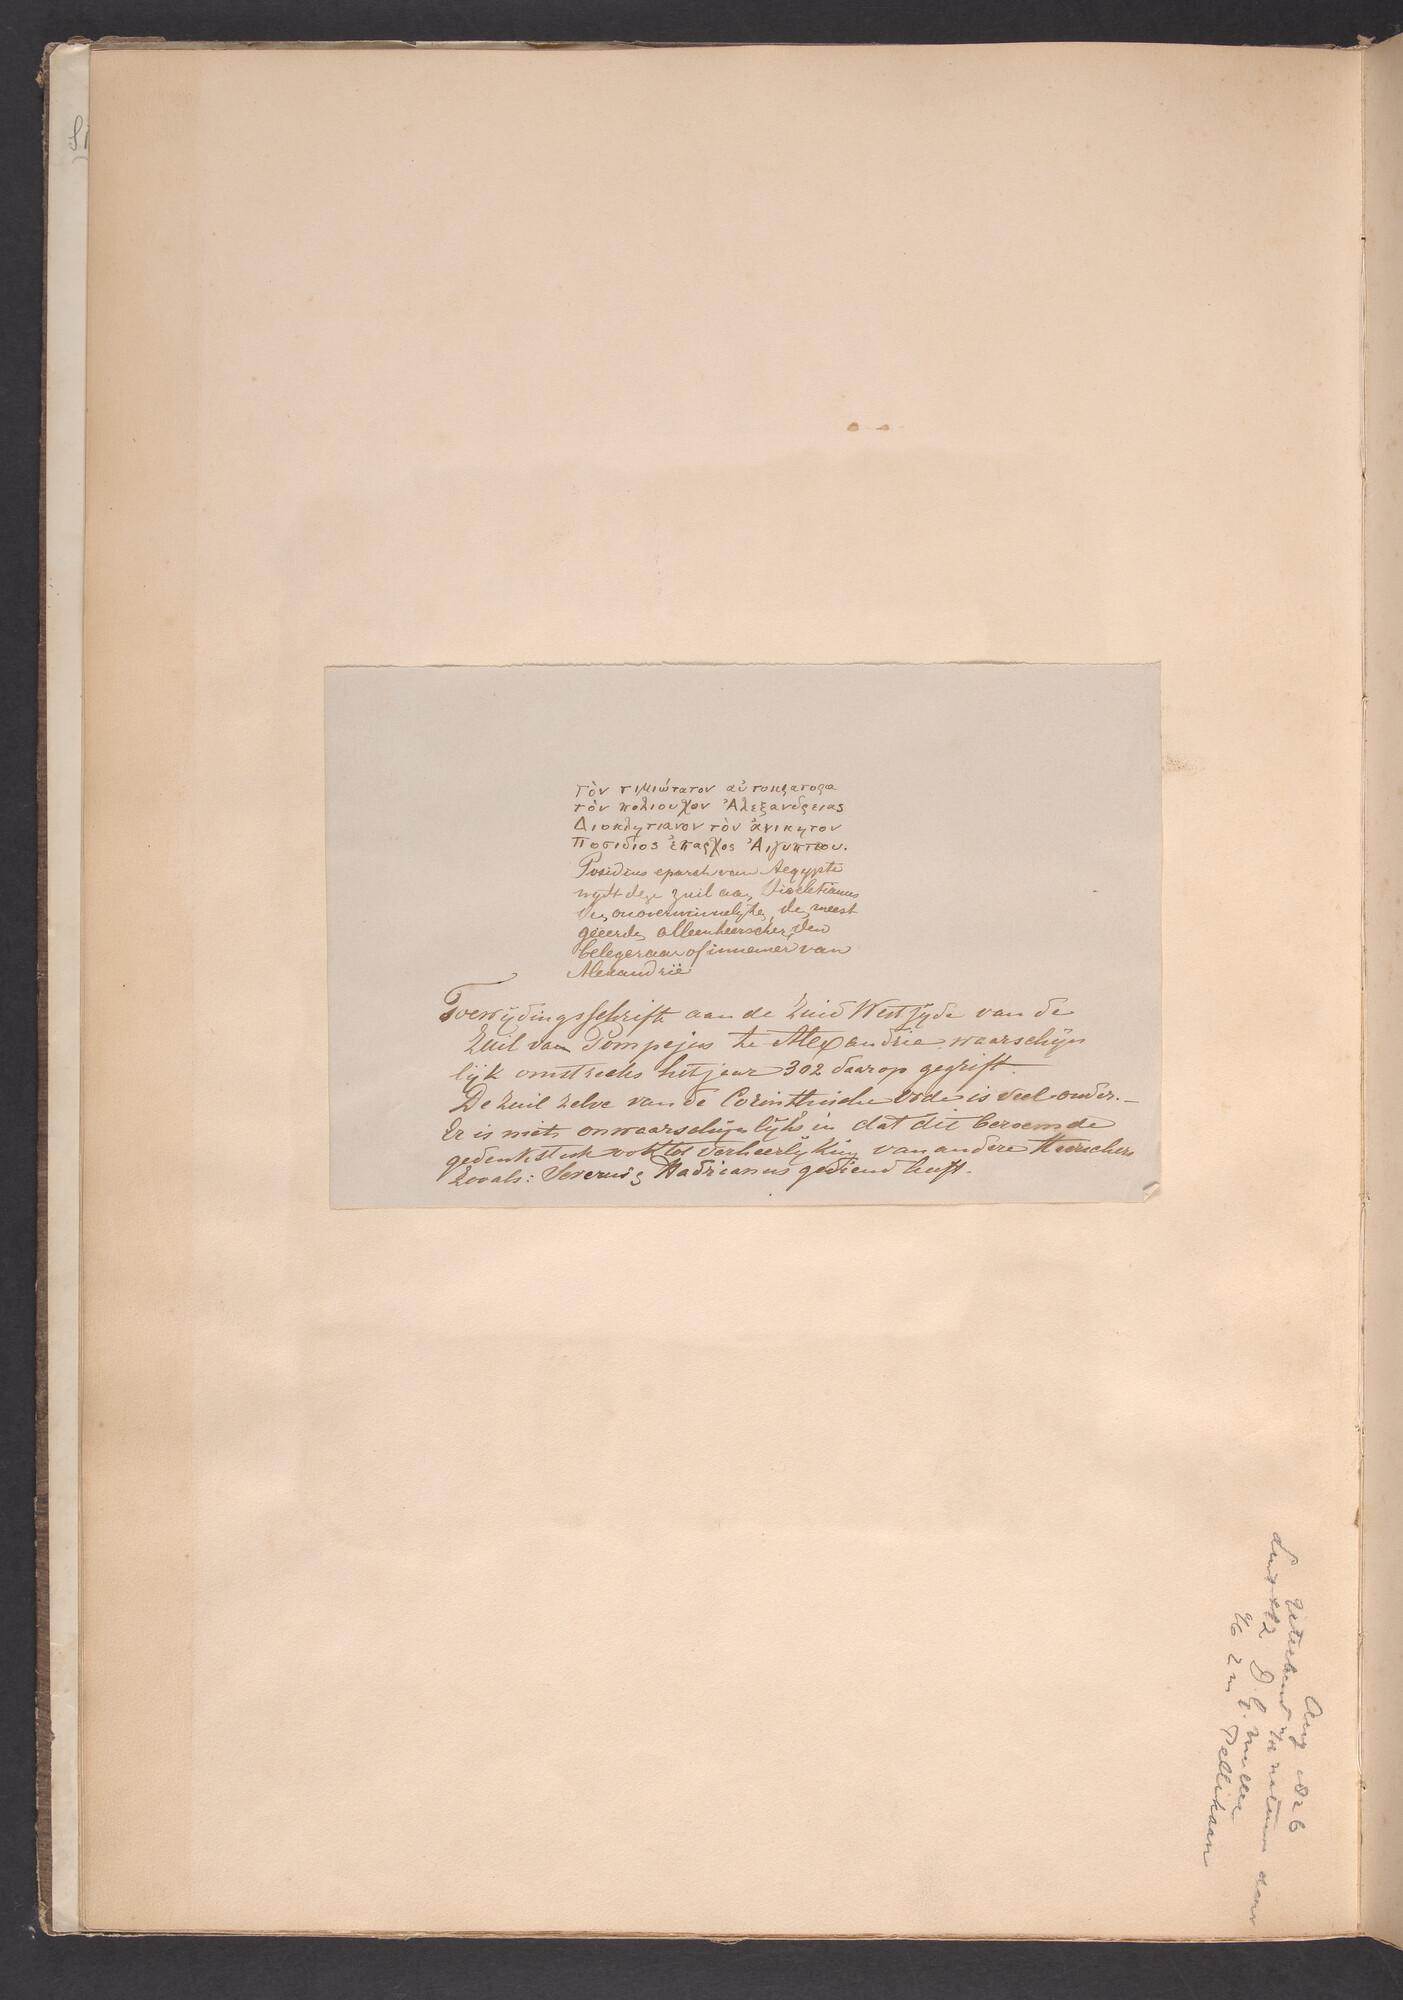 Τὸν τιμιώτατον αὐτοκρατορα
τὸν πολιουχον Ἀλεξανδρειας
Διοκλητιανον τὸν ἀνικητον
Ποσιδιος ἐπαρχος Ἀιγυπτου.
Posidius eparch van Aegypte
wydt deze zuil aan Diocletianus
den onoverwinnelyke, de meest
geëerde alleenheerscher, den
belegeraar of innemer van
Alexandrië
Toewijdingsschrift aan de Zuid West zyde van de
Zuil van Pompejus te Alexandrie waarschijn
lijk omstreeks het jaar 302 daarop gegrift.
De zuil zelve van de Corinthische orde is veel ouder. —
Er is niets onwaarschijnlijks in dat dit beroemde
gedenkstuk ook tot verheerlijking van andere Heerschers
zooals: Severus, Hadrianus gediend heeft.
Aug 1826
Geteekend n/d natuur door
Luit ter Z D. G. Muller
ZM Pellikaan